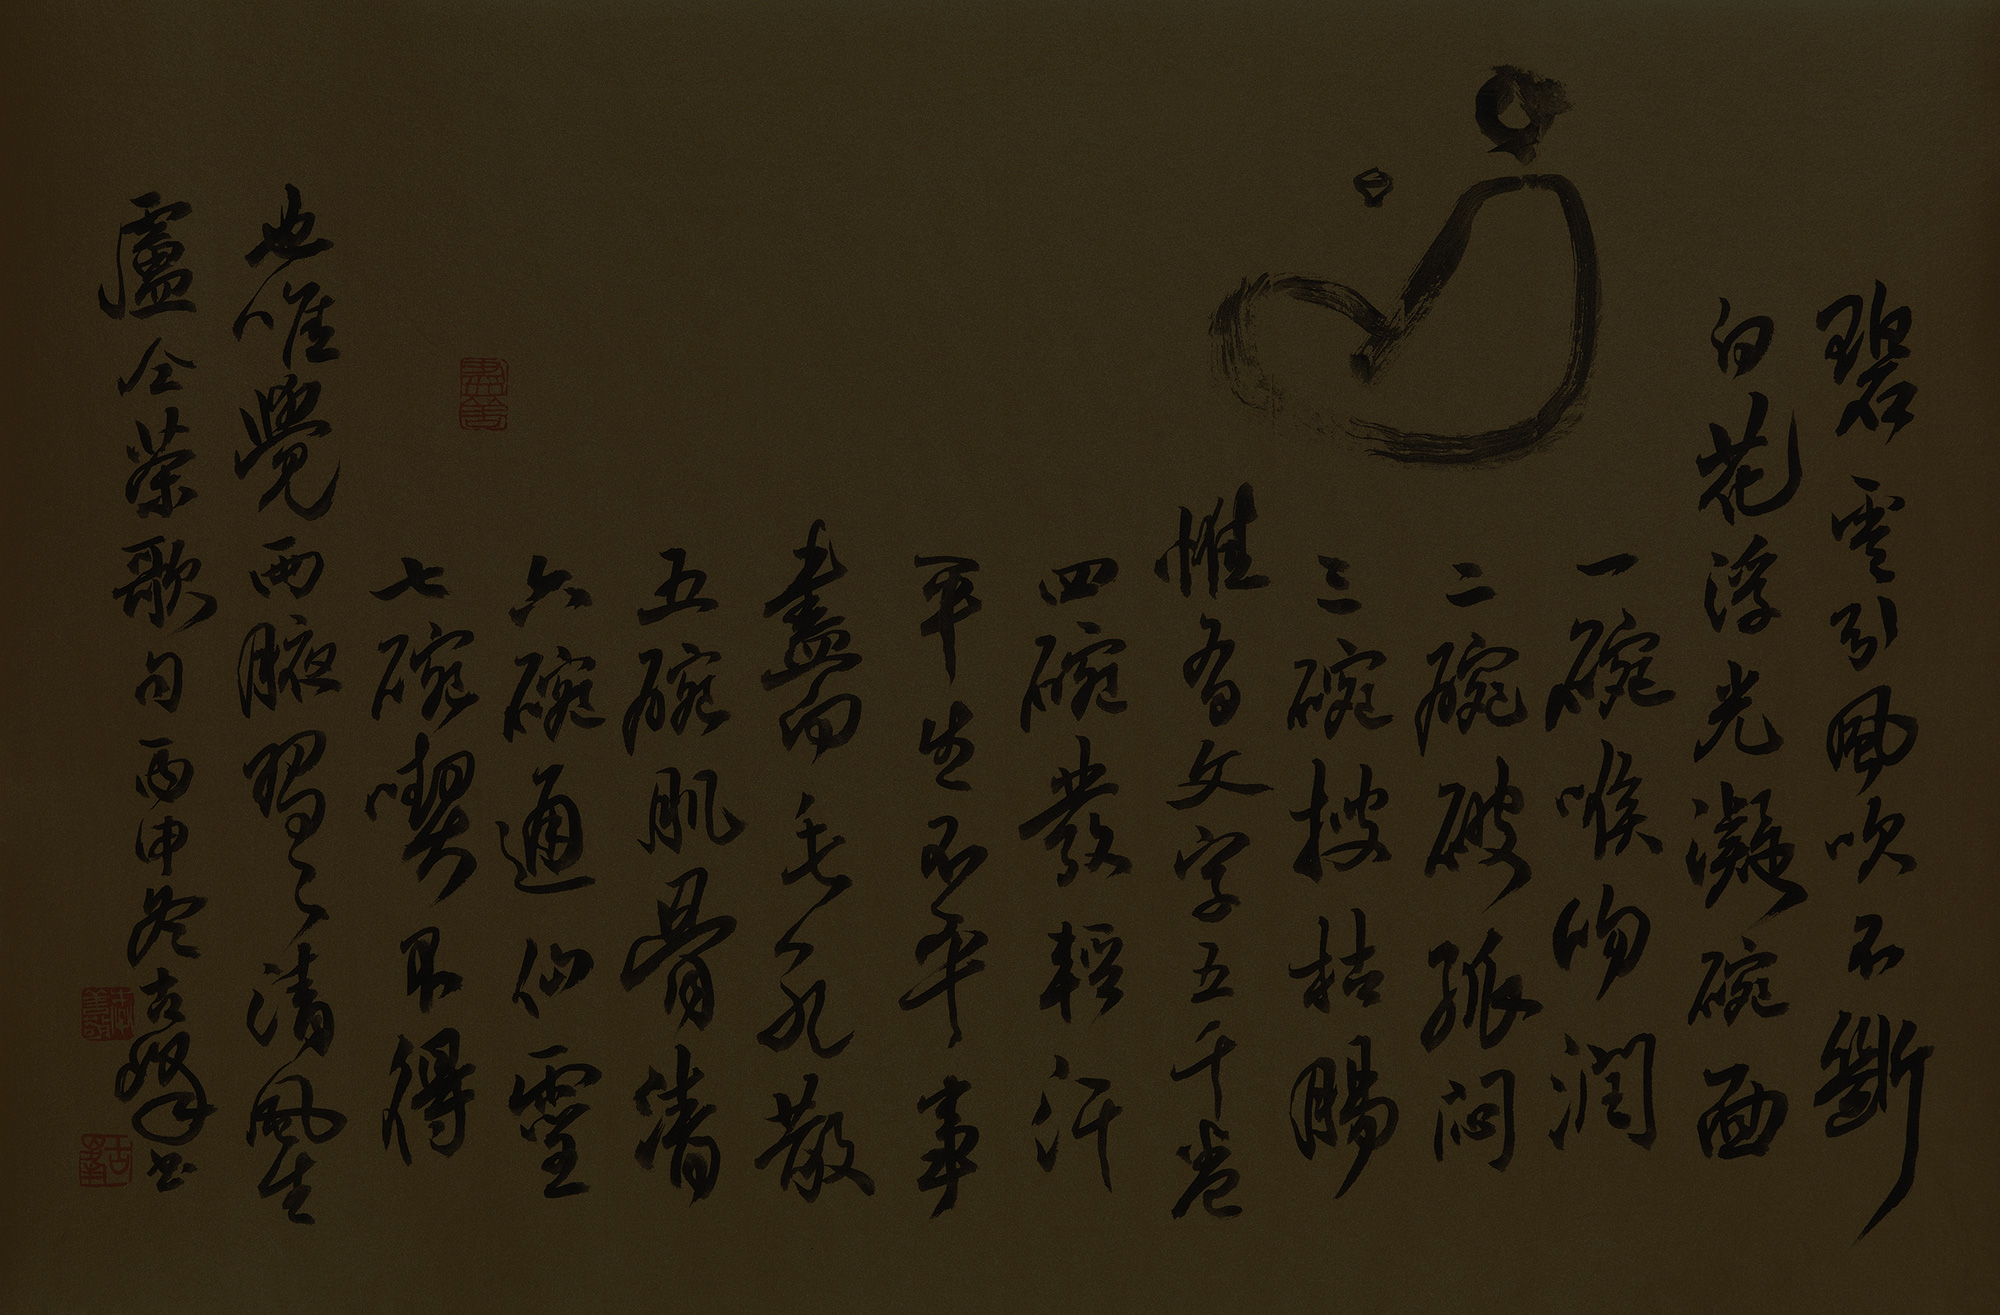 碧雲引風吹不斷
白花浮光凝碗面
一碗喉吻潤
二碗破孤悶
三碗搜枯腸
惟有文字五千卷
四碗發輕汗
平生不平事
盡向毛孔散
五碗肌骨清
六碗通仙靈
七碗喫不得
也唯覺兩腋習々清風生
盧仝茶歌句丙申冬古峯書